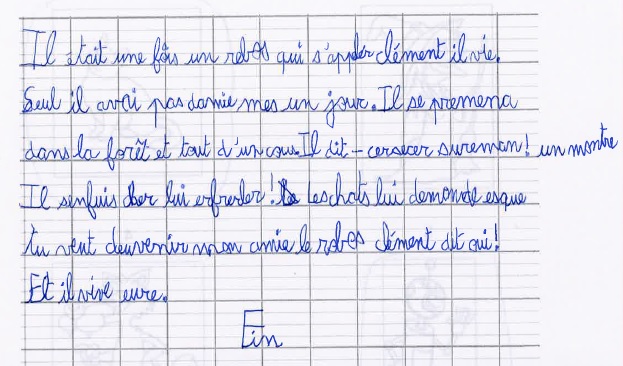 Il était une fois un robos qui s'appler clément il vie.
Seul il avai pas damie mes un jour. Il se premena
dans la forêt et tout d'un cous. Il dit - cersecer sureman! un montre
Il senfuis cher lui erfreder! Le chats lui demande esque
tu veut deuvenir mon amie le robos clément dit oui!
Et il vive eure.
Fin